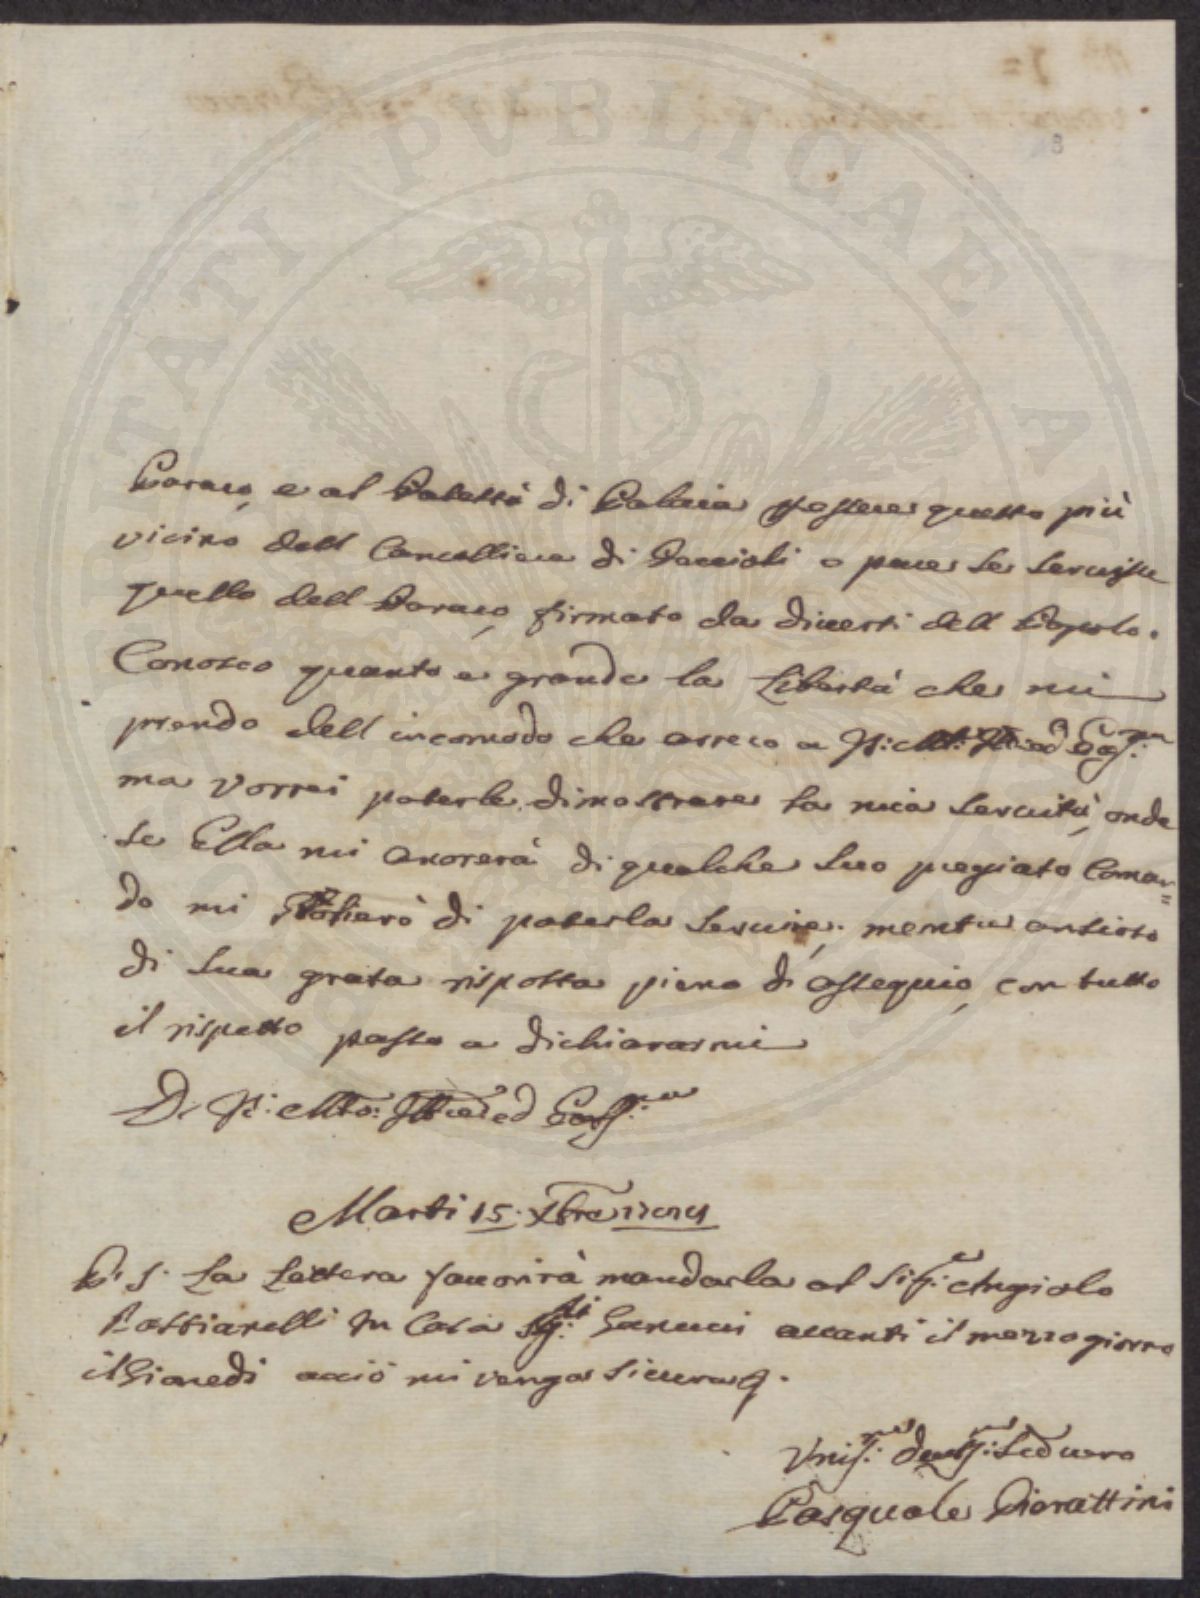 PVBLICAE
Paraco, e al Potestà di Palaia fossere questo più
vicino dell Cancelliere di Peccioli o pure se servisse
quello dell Paraco, firmato da diversi dell Popolo.
Conosco quanto e grande la Libertà che mi
prendo dell incomodo che arreco a
ma vorrei poterle dimostrare la mia servitù, onde
se Ella mi onorerà di qualche suo pregiato Coman=
do mi di poterla servire; mentre ansioso
di sua grata risposta pieno di ossequio, con tutto
il rispetto passo a dichiararmi
Di
Marti 15. Xbre
P. S. La Lettera favorirà mandarla al Sig.e Angiolo
in Casa avanti il mezzo giorno
il Giovedì acciò mi venga sicura
Servo
Pasquale Fiorattini